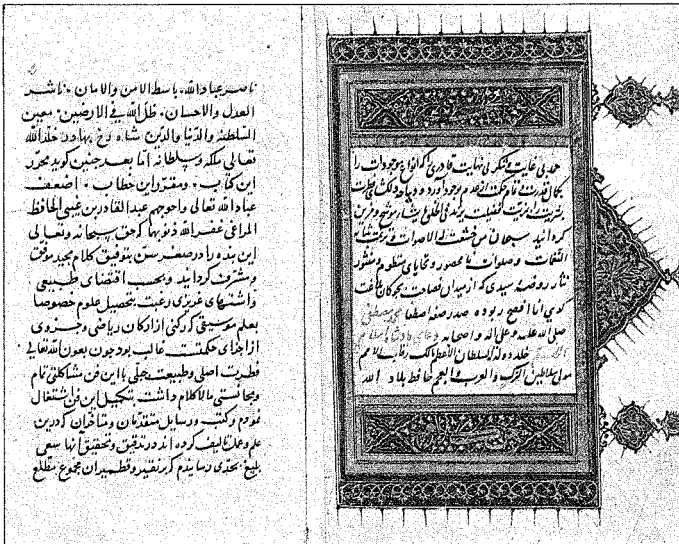 حمد بی غایت و شکر بی نهایت قادری را که انواع موجودات را
بکمال قدرت و تمام حکمت از عدم بوجود آورد و فطرت
بشریت را بمزیت فضیلت یزید فی الخلق ما یشاء موشح و مزین
کردانید سبحان من خشعت له الاصوات
النغمات و صلوات نامحصور و تحایای منظوم و منثور
نثار روضهٔ سیدی که از میدان فصاحت بچوکان بلاغت
کوی انا افصح ربوده صدر صفهٔ اصطفا مصطفی
صلی الله علیه و علی اله و اصحابه
خلد دوله السلطان الاعظم مالک رقاب الامم
مولی سلاطین الترک والعرب والعجم حافظ بلاد الله
ناصر عباد الله، باسط الامن والامان، ناشر
العدل والاحسان، ظل الله فی الارضین، معین
السلطنة والدنیا والدین شاه رخ بهادر خلد الله
تعالی ملکه و سلطانه اما بعد چنین کوید محرر
این کتاب، و مقرر این خطاب، اضعف
عباد الله تعالی و احوجهم عبدالقادر بن غیبی الحافظ
المراغی غفر الله ذنوبهما که حق سبحانه و تعالی
این بنده را در صغر سن بتوفیق کلام مجید موفق
و مشرف کردانید و بحسب اقتضای طبیعی
و اشتهای غریزی رغبت بتحصیل علوم خصوصا
بعلم موسیقی که رکنی از ارکان ریاضی و جزوی
از اجزای حکمتست غالب بود چون بعون الله تعالی
فطرت اصلی و طبیعت جبلی با این فن مشاکلتی تام
و مجانستی مالاکلام داشت بتکمیل این فن اشتغال
نمودم و کتب و رسایل متقدمان و متاخران که درین
علم و عمل تالیف کرده اند در تدقیق و تحقیق انها سعی
بلیغ بحدی رسانیدم که بر نقیر و قطمیر ان مجموع مطلع